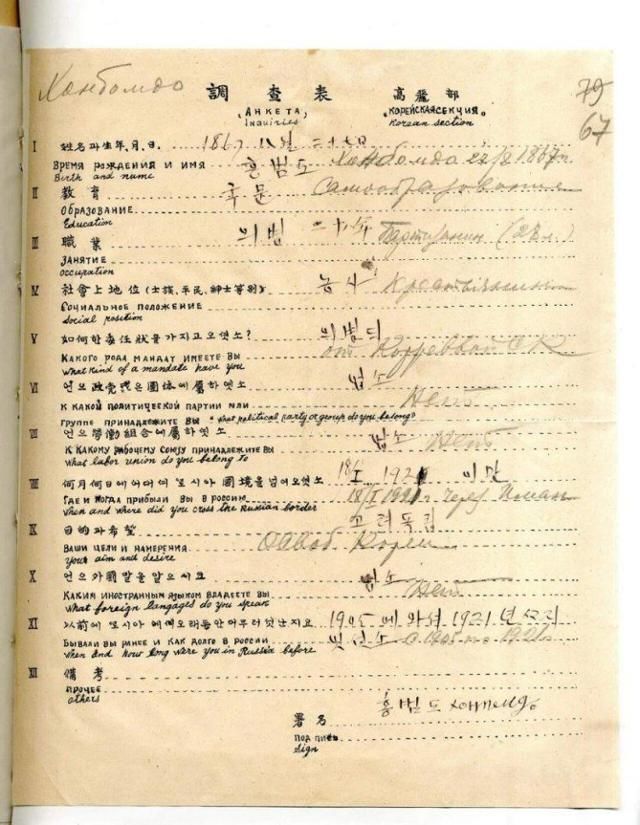 Ханбомдо
調查表 高麗部
75
АНКЕТА КОРЕЙСКАЯ СЕКЦИЯ
Inquiries Korean section
67
I 姓名과生年,月,日. 1867
ВРЕМЯ РОЖДЕНИЯ И ИМЯ 홍범도 Ханбомдо 1867г.
Birth and name
II 教育 국문
ОБРАЗОВАНИЕ
Education
III 職業 의병 二十年 Партизан
ЗАНЯТИЕ
occupation
IV 社會上地位(士族, 平民, 紳士等別) 농사
СОЦИАЛЬНОЕ ПОЛОЖЕНИЕ
Social position
V 如何한委任狀을가지고오엿소? 의병듸
КАКОГО РОДА МАНДАТ ИМЕЕТЕ ВЫ от
What kind of a mandate have you
VI 언으政党또은團体에屬하엿소 업소
К КАКОЙ ПОЛИТИЧЕСКОЙ ПАРТИИ ИЛИ Нет
ГРУППЕ ПРИНАДЛЕЖИТЕ ВЫ What political party or group do you belong?
VII 언으勞働組合에屬하엿소 업소
К КАКОМУ РАБОЧЕМУ СОЮЗУ ПРИНАДЛЕЖИТЕ ВЫ Нет
What labor union do you belong to
VIII 何月何日에어데에로시아國境을넘어오엿소 18/I 1921 이만
ГДЕ И КОГДА ПРИБЫЛИ ВЫ В РОССИЮ 18/I 1921г. через Иман
When and where did you cross the Russian border
IX 目的과希望 고려독립
ВАШИ ЦЕЛИ И НАМЕРЕНИЯ Освоб. Кореи
your aim and desire
X 언으外國말을알으시오 업소
КАКИМ ИНОСТРАННЫМ ЯЗЫКОМ ВЛАДЕЕТЕ ВЫ Нет
What foreign langages do you speak
XI 以前에로시아에예오래동안머무러엇난지요 1905 1921년
БЫВАЛИ ВЫ РАНЕЕ И КАК ДОЛГО В РОССИИ с 1905 по 1921г.
When and how long were you in Russia before
XII 備考
ПРОЧЕЕ
others
署名 홍범도
ПОДПИСЬ
Sign